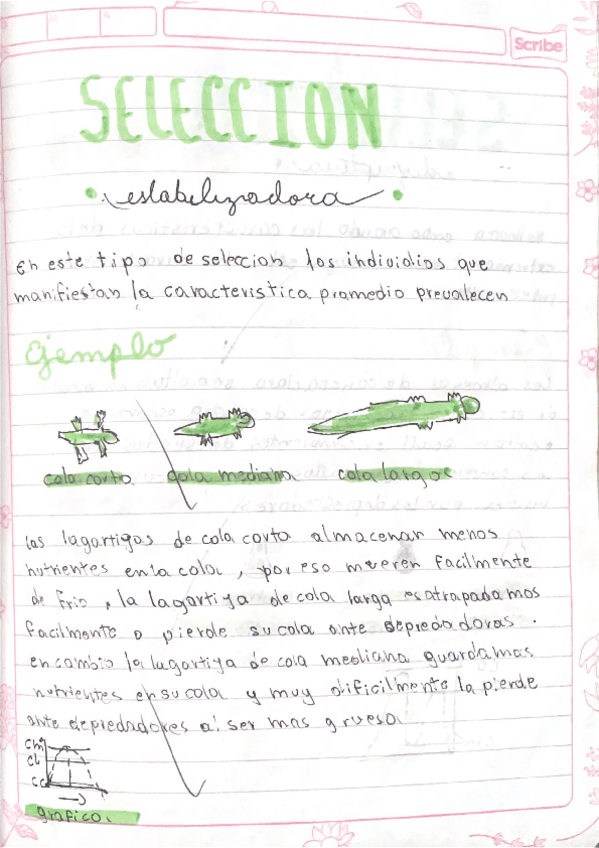 Scribe
SELECCION
estabelizadora
En este tipo de seleccion los individios que
manifiestan la caracteristica promedio prevalecen
Ejemplo
cola corto cola mediana cola largoe
las lagartigas de cola corta almacenan menos
nutrientes en la cola, por eso mueren facilmente
de frio, la lagortiya de cola larga es atrapada mas
facilmente o pierde su cola ante depredadoras.
en cambio la lagartiya de cola mediana guarda mas
nutrientes en su cola y muy dificilmente la pierde
ante depredadores al ser mas gruesa
Cm
CL
CC
grafico.